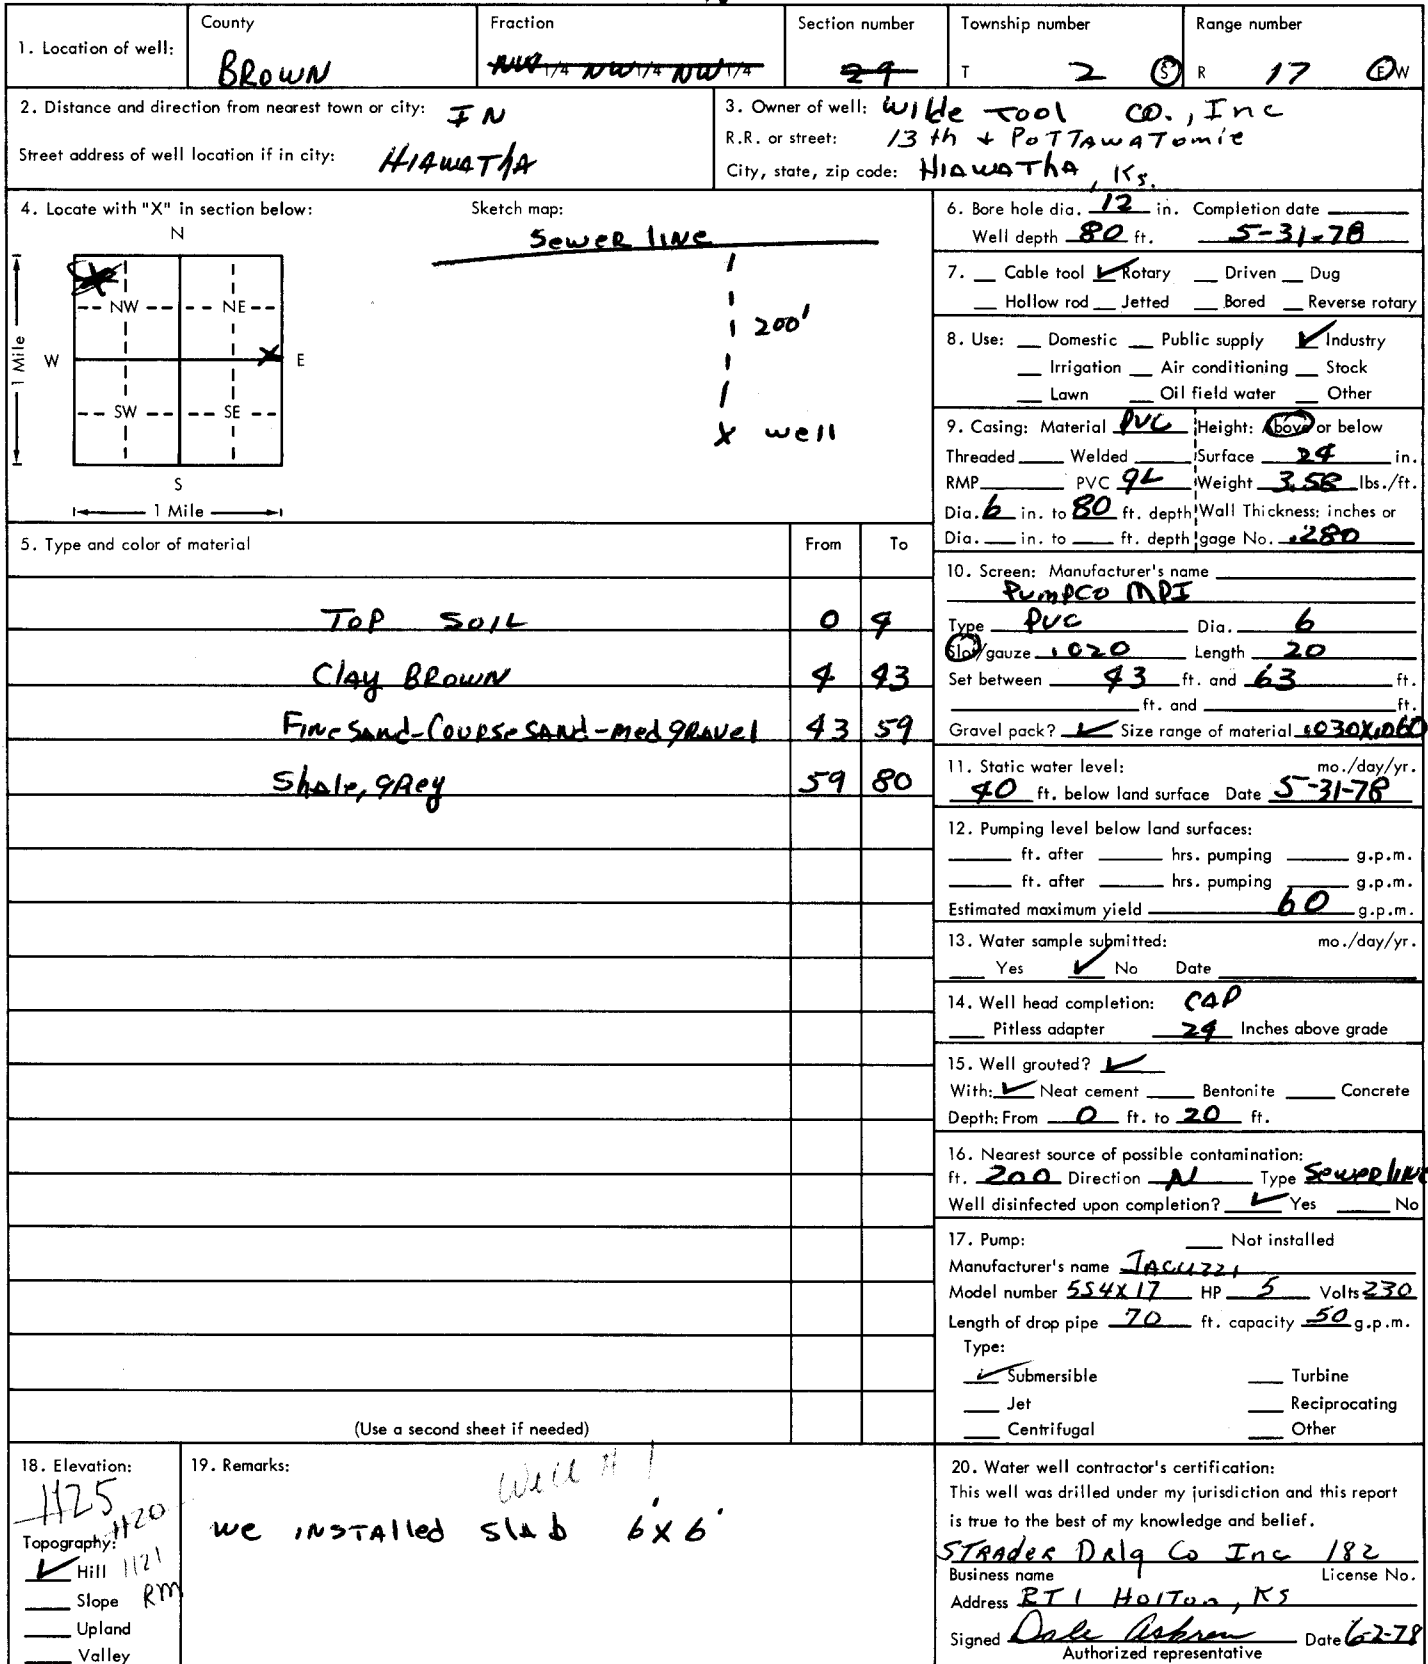 County Fraction Section number Township number Range number
1. Location of well: BROWN NW 1/4 NW 1/4 NW 1/4 29 T 2 S R 17 E W
2. Distance and direction from nearest town or city: IN
Street address of well location if in city: HIAWATHA
3. Owner of well: Wilde Tool CO., Inc
R.R. or street: 13th + POTTAWATOMIE
City, state, zip code: HIAWATHA, Ks.
4. Locate with "X" in section below: Sketch map:
N
NW NE
W E
SW SE
S
1 Mile
1 Mile
Sewer line
200'
X well
5. Type and color of material From To
TOP SOIL 0 4
Clay BROWN 4 43
Fine SAND-COURSE SAND-med gravel 43 59
Shale, grey 59 80
(Use a second sheet if needed)
6. Bore hole dia. 12 in. Completion date
Well depth 80 ft. 5-31-78
7. Cable tool ✓ Rotary Driven Dug
Hollow rod Jetted Bored Reverse rotary
8. Use: Domestic Public supply ✓ Industry
Irrigation Air conditioning Stock
Lawn Oil field water Other
9. Casing: Material PVC Height: Above or below
Threaded Welded Surface 24 in.
RMP PVC 9L Weight 3.58 lbs./ft.
Dia. 6 in. to 80 ft. depth Wall Thickness: inches or
Dia. in. to ft. depth gage No. .280
10. Screen: Manufacturer's name
PumpCo MPI
Type PVC Dia. 6
Slot/gauze .020 Length 20
Set between 43 ft. and 63 ft.
ft. and ft.
Gravel pack? ✓ Size range of material .030X.060
11. Static water level: mo./day/yr.
40 ft. below land surface Date 5-31-78
12. Pumping level below land surfaces:
ft. after hrs. pumping g.p.m.
ft. after hrs. pumping g.p.m.
Estimated maximum yield 60 g.p.m.
13. Water sample submitted: mo./day/yr.
Yes ✓ No Date
14. Well head completion: CAP
Pitless adapter 24 Inches above grade
15. Well grouted? ✓
With: ✓ Neat cement Bentonite Concrete
Depth: From 0 ft. to 20 ft.
16. Nearest source of possible contamination:
ft. 200 Direction N Type Sewer line
Well disinfected upon completion? ✓ Yes No
17. Pump: Not installed
Manufacturer's name JACUZZI
Model number 5S4X17 HP 5 Volts 230
Length of drop pipe 70 ft. capacity 50 g.p.m.
Type:
✓ Submersible Turbine
Jet Reciprocating
Centrifugal Other
18. Elevation:
1125
1120
1121
RM
Topography:
✓ Hill
Slope
Upland
Valley
19. Remarks:
Well # 1
we INSTAlled slab 6'X6'
20. Water well contractor's certification:
This well was drilled under my jurisdiction and this report
is true to the best of my knowledge and belief.
STRADER Drlg Co Inc 182
Business name License No.
Address RT 1 HolTon, KS
Signed Dale Askren Date 6-2-78
Authorized representative